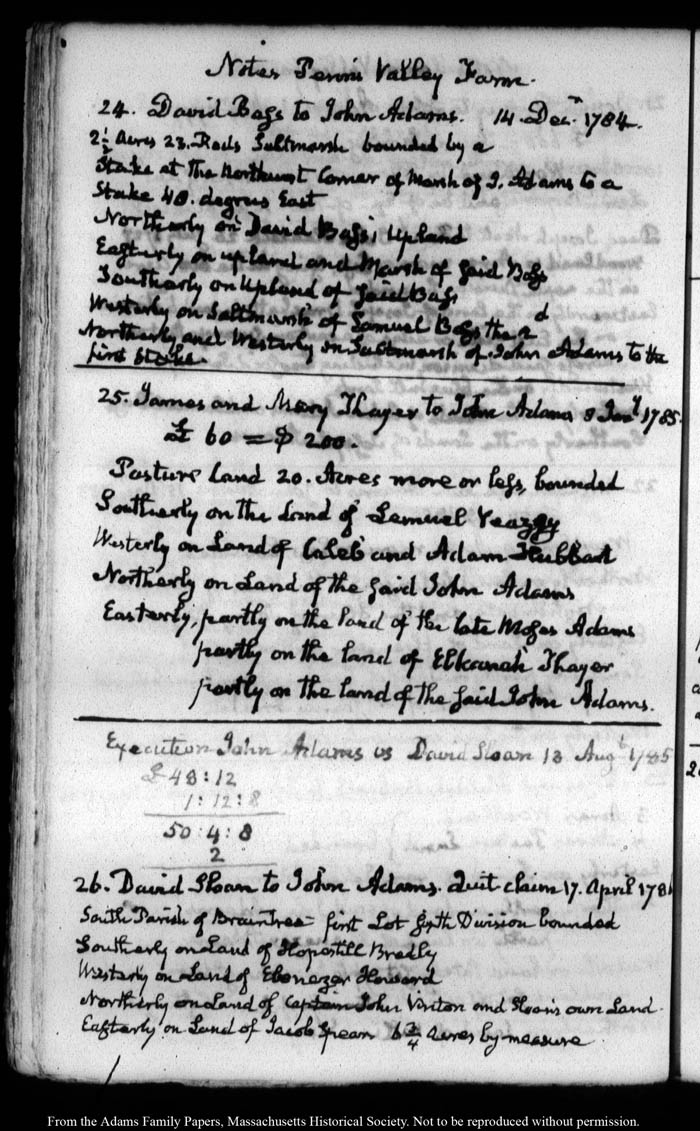 Notes Penns Valley Farm.
24. David Bass to John Adams. 14. Decr. 1784.
2½ Acres 23. Rods Saltmarsh bounded by a
Stake at the Northwest Corner of Marsh of J. Adams to a
Stake 40. degrees East
Northerly on David Bass's Upland
Easterly on upland and Marsh of said Bass
Southerly on Upland of said Bass
Westerly on Saltmarsh of Samuel Bass the 2d
Northerly and Westerly on Saltmarsh of John Adams to the
first Stake.
25. James and Mary Thayer to John Adams 8 Jany 1785
£ 60 = $ 200.
Pasture land 20. Acres more or less, bounded
Southerly on the Land of Lemuel Veazey
Westerly on Land of Caleb and Adam Hubbart
Northerly on Land of the said John Adams
Easterly, partly on the land of the late Moses Adams
partly on the land of Elkanah Thayer
partly on the land of the said John Adams.
Execution John Adams vs David Sloan 13 Augt 1785
£ 48:12
1:12:8
50:4:8
2
26. David Sloan to John Adams. Quit claim 17. April 178
South Parish of Braintree first Lot sixth Division bounded
Southerly on Land of Hopestill Bradly
Westerly on Land of Ebenezer Howard
Northerly on Land of Captain John Vinton and Sloan's own Land
Easterly on Land of Jacob Spear 6¾ Acres by measure
From the Adams Family Papers, Massachusetts Historical Society. Not to be reproduced without permission.